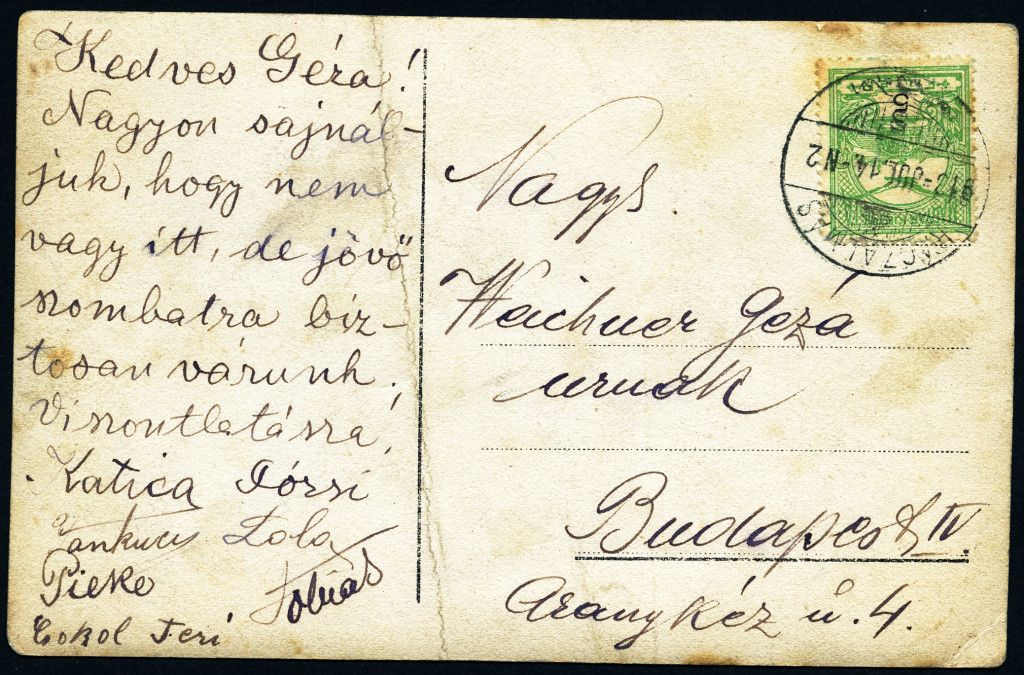 Kedves Géza!
Nagyon sajnál-
juk, hogy nem
vagy itt, de jövő
szombatra biz-
tosan várunk.
Viszontlatásra,
Katica Jórsi
Lola
Pieke
Tobias
Cokol Feri
Nagys.
Weichner Géza
urnak
Budapest IV
Aranykéz u. 4.
912 JUL. 14 -N2